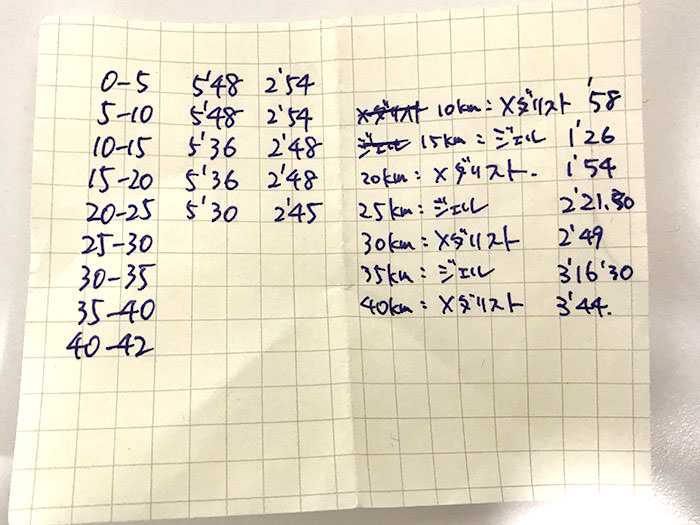 0-5 5'48 2'54
5-10 5'48 2'54
10-15 5'36 2'48
15-20 5'36 2'48
20-25 5'30 2'45
25-30
30-35
35-40
40-42
メダリスト 10km:メダリスト '58
ジェル 15km:ジェル 1'26
20km:メダリスト. 1'54
25km:ジェル 2'21.30
30km:メダリスト 2'49
35km:ジェル 3'16'30
40km:メダリスト 3'44.